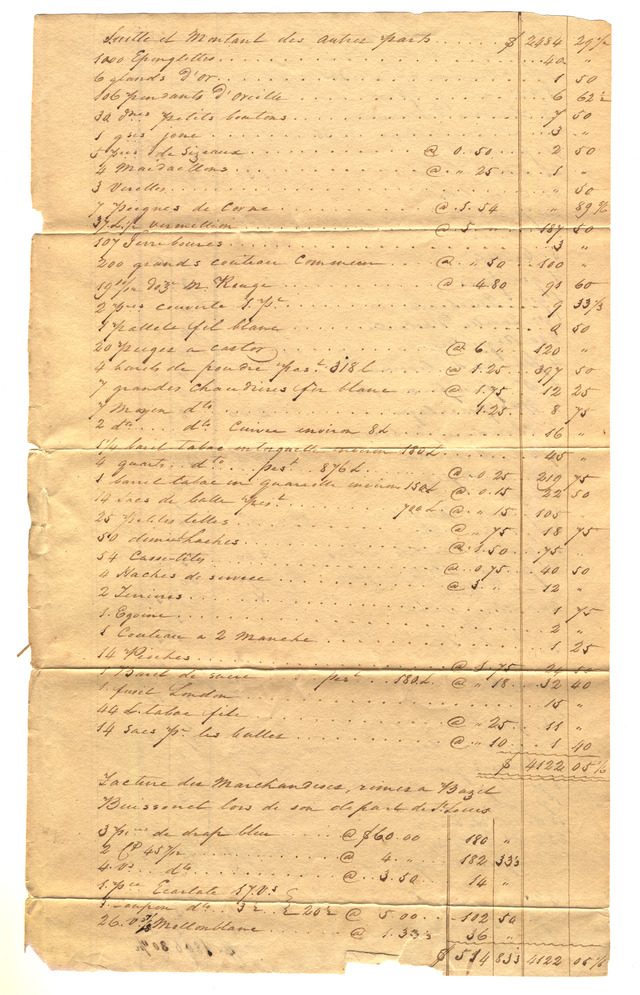 Suitte et Montant des autres parts $ 2484 29½
1000 Epinglettes 40 "
6 glands D'or 1 50
106 pendants D'oreille 6 62½
30 dnes petits boutons 7 50
1 jonc 3 "
5 pres de Sizeaux @ 0.50 2 50
4 Maidaillons @ " 25 1 "
3 Virolles " 50
7 peignes de Corne @ 1.54 " 89
37 L½ vermillion @ 5 " 187 50
107 Ferrebourres 3 "
200 grands couteau Commun @ " 50 100 "
19 doz. M. Rouge @ 4.80 91 60
2 pres couverte 9 33⅓
1 pallete fil blanc 50
20 pieges a Castor @ 6 " 120 "
4 barils de poudre pest. 318 L @ 1.25 397 50
7 grandes chaudieres fer blanc @ 1.75 12 25
7 Moyen dto 1.25 8 75
2 dto dto Cuivre environ 8 L 16 "
baril tabac environ 180 L 45 "
4 quarts dto pest. 876 L @ 0 25 219 75
1 baril tabac en environ 150 L @ 0.15 22 50
14 sacs de balle pest. 700 L @ " 15 105
25 petites @ " 75 18 75
50 demie haches @ 1.50 75 "
54 Casse-têtes @ 0.75 40 50
4 Haches de service @ 3 " 12 "
2 1 75
1 Egoine 2 "
1 Couteau a 2 Manche 1 25
14 Pioches @ 1.75 24 50
1 Baril de sucre pest. 180 L @ " 18 32 40
1 fusil London 15 "
44 L tabac @ " 25 11 "
14 sacs pr les balles @ " 10 1 40
$ 4122 05
Facture des Marchandises, remis a Bazil
Buissonet lors de son depart de St Louis
3 pces de drap bleu @ $60.00 180 "
2 Cp 45 @ 4 " 182 33⅓
4 vs dto @ 3.50 14 "
1 pce Ecarlate 17 vs
1 coupon dto 3½ 20½ @ 5.00 102 50
26 vs Mollonblanc @ 1.33⅓ 36 "
$ 514 83⅓ 4122 05